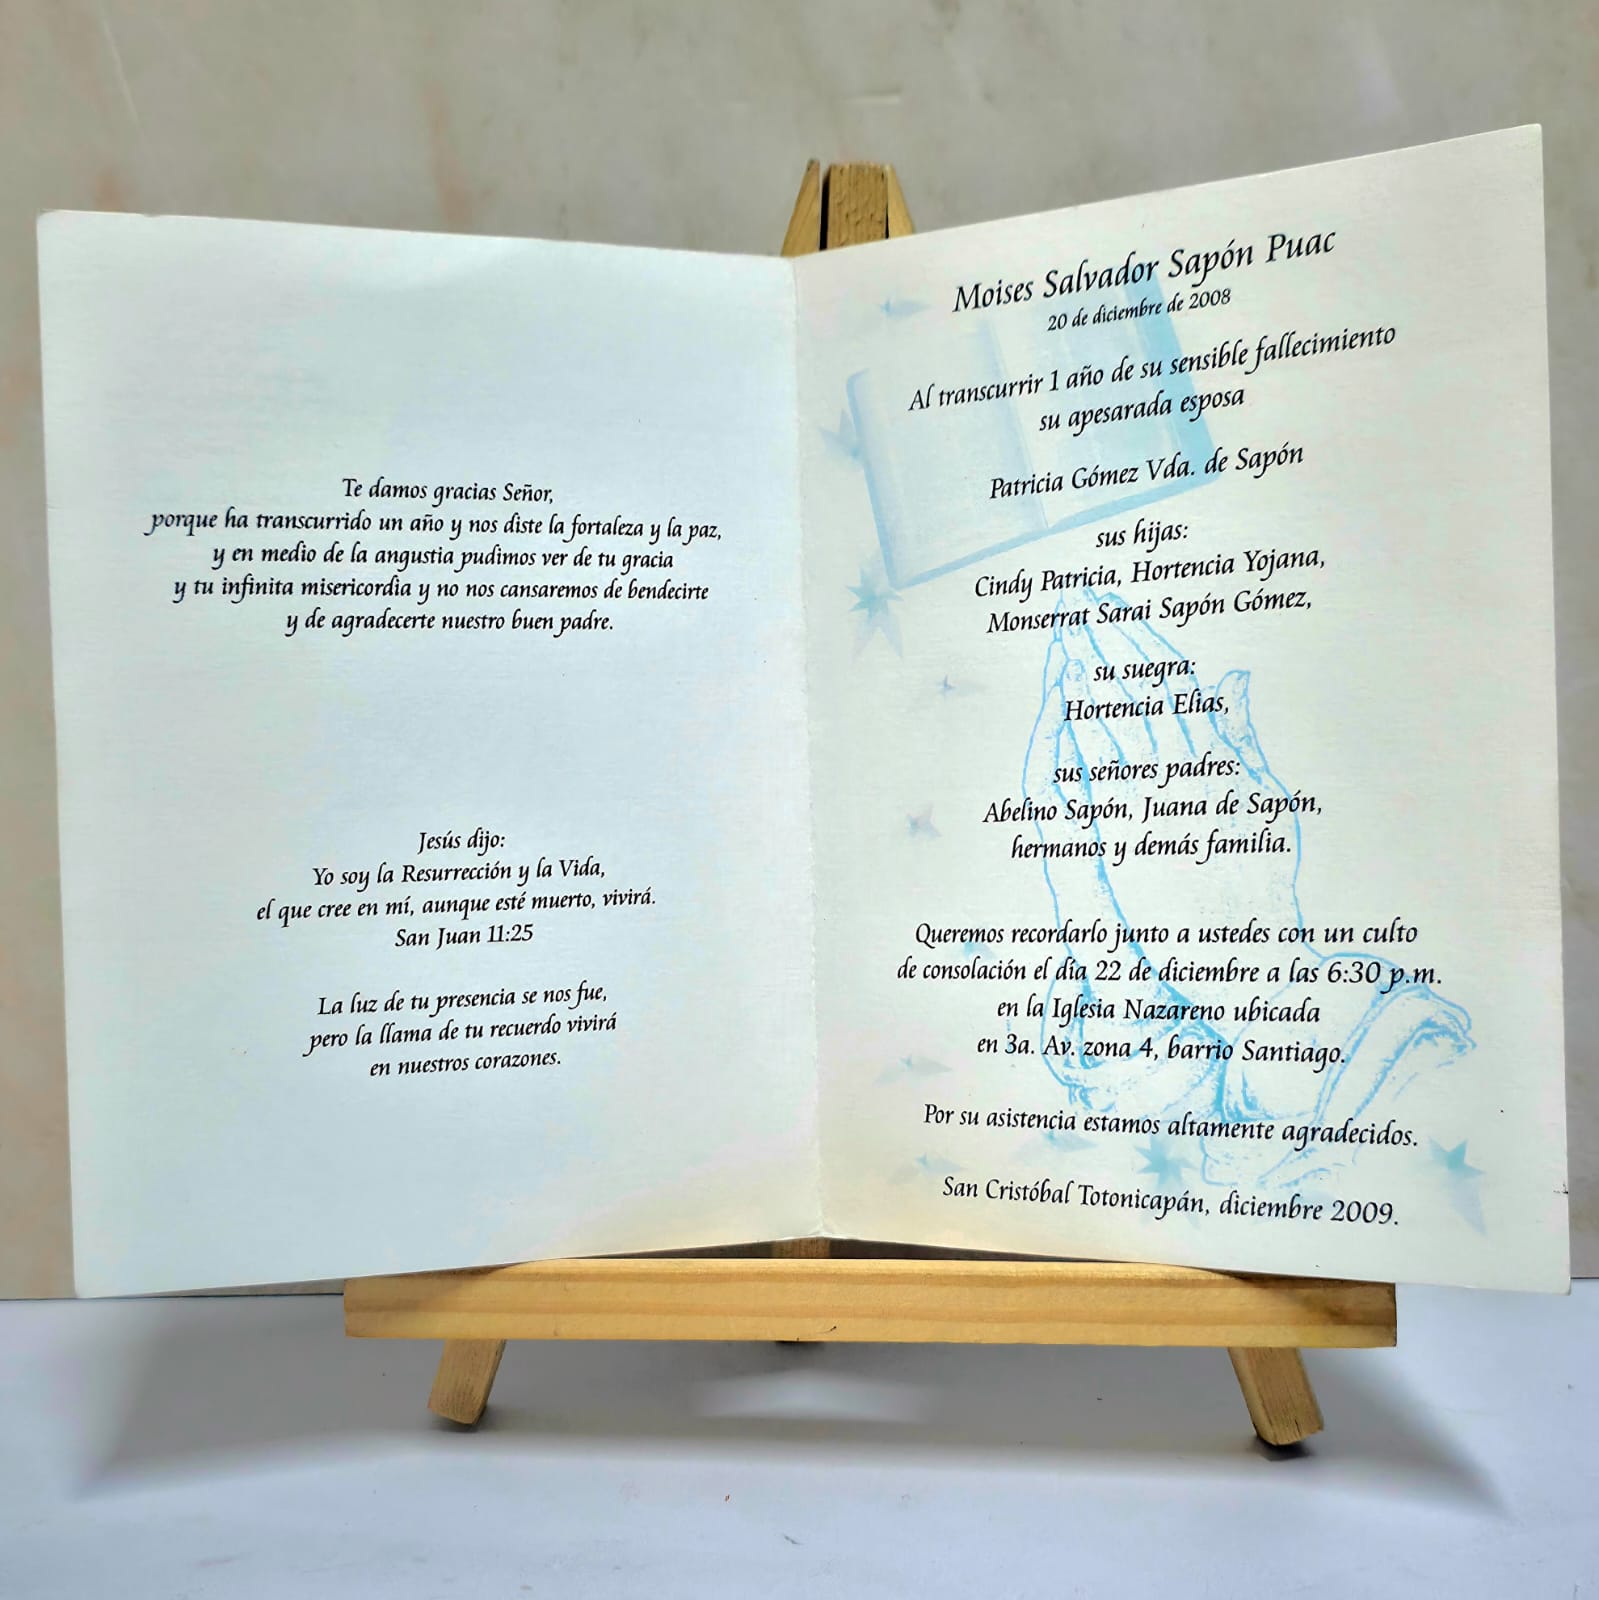 Te damos gracias Señor,
porque ha transcurrido un año y nos diste la fortaleza y la paz,
y en medio de la angustia pudimos ver de tu gracia
y tu infinita misericordia y no nos cansaremos de bendecirte
y de agradecerte nuestro buen padre.
Jesús dijo:
Yo soy la Resurrección y la Vida,
el que cree en mí, aunque esté muerto, vivirá.
San Juan 11:25
La luz de tu presencia se nos fue,
pero la llama de tu recuerdo vivirá
en nuestros corazones.
Moises Salvador Sapón Puac
20 de diciembre de 2008
Al transcurrir 1 año de su sensible fallecimiento
su apesarada esposa
Patricia Gómez Vda. de Sapón
sus hijas:
Cindy Patricia, Hortencia Yojana,
Monserrat Sarai Sapón Gómez,
su suegra:
Hortencia Elias,
sus señores padres:
Abelino Sapón, Juana de Sapón,
hermanos y demás familia.
Queremos recordarlo junto a ustedes con un culto
de consolación el día 22 de diciembre a las 6:30 p.m.
en la Iglesia Nazareno ubicada
en 3a. Av. zona 4, barrio Santiago.
Por su asistencia estamos altamente agradecidos.
San Cristóbal Totonicapán, diciembre 2009.